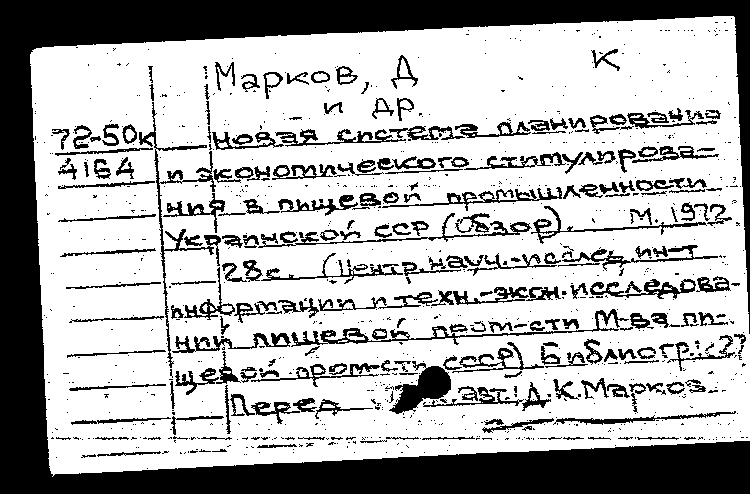 Марков, Д К
и др.
72-50к Новая система планирования
4164 и экономического стимулирова-
ния в пищевой промышленности
Украинской ССР (Обзор). М, 1972.
28с. (Центр. науч.-исслед. ин-т
информации и техн.-экон. исследова-
ний пищевой пром-сти М-ва пи-
щевой пром-сти СССР) Библиогр.: с 27
Перед авт.: Д.К. Марков